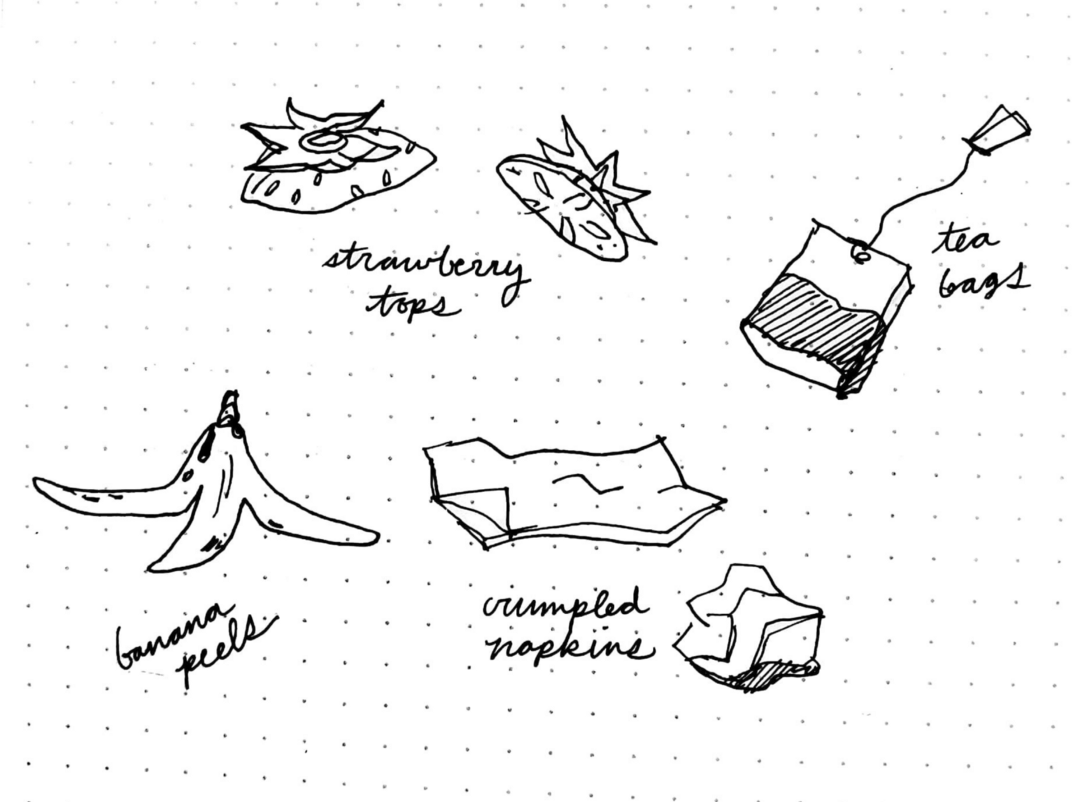 strawberry
tops
tea
bags
banana
peels
crumpled
napkins